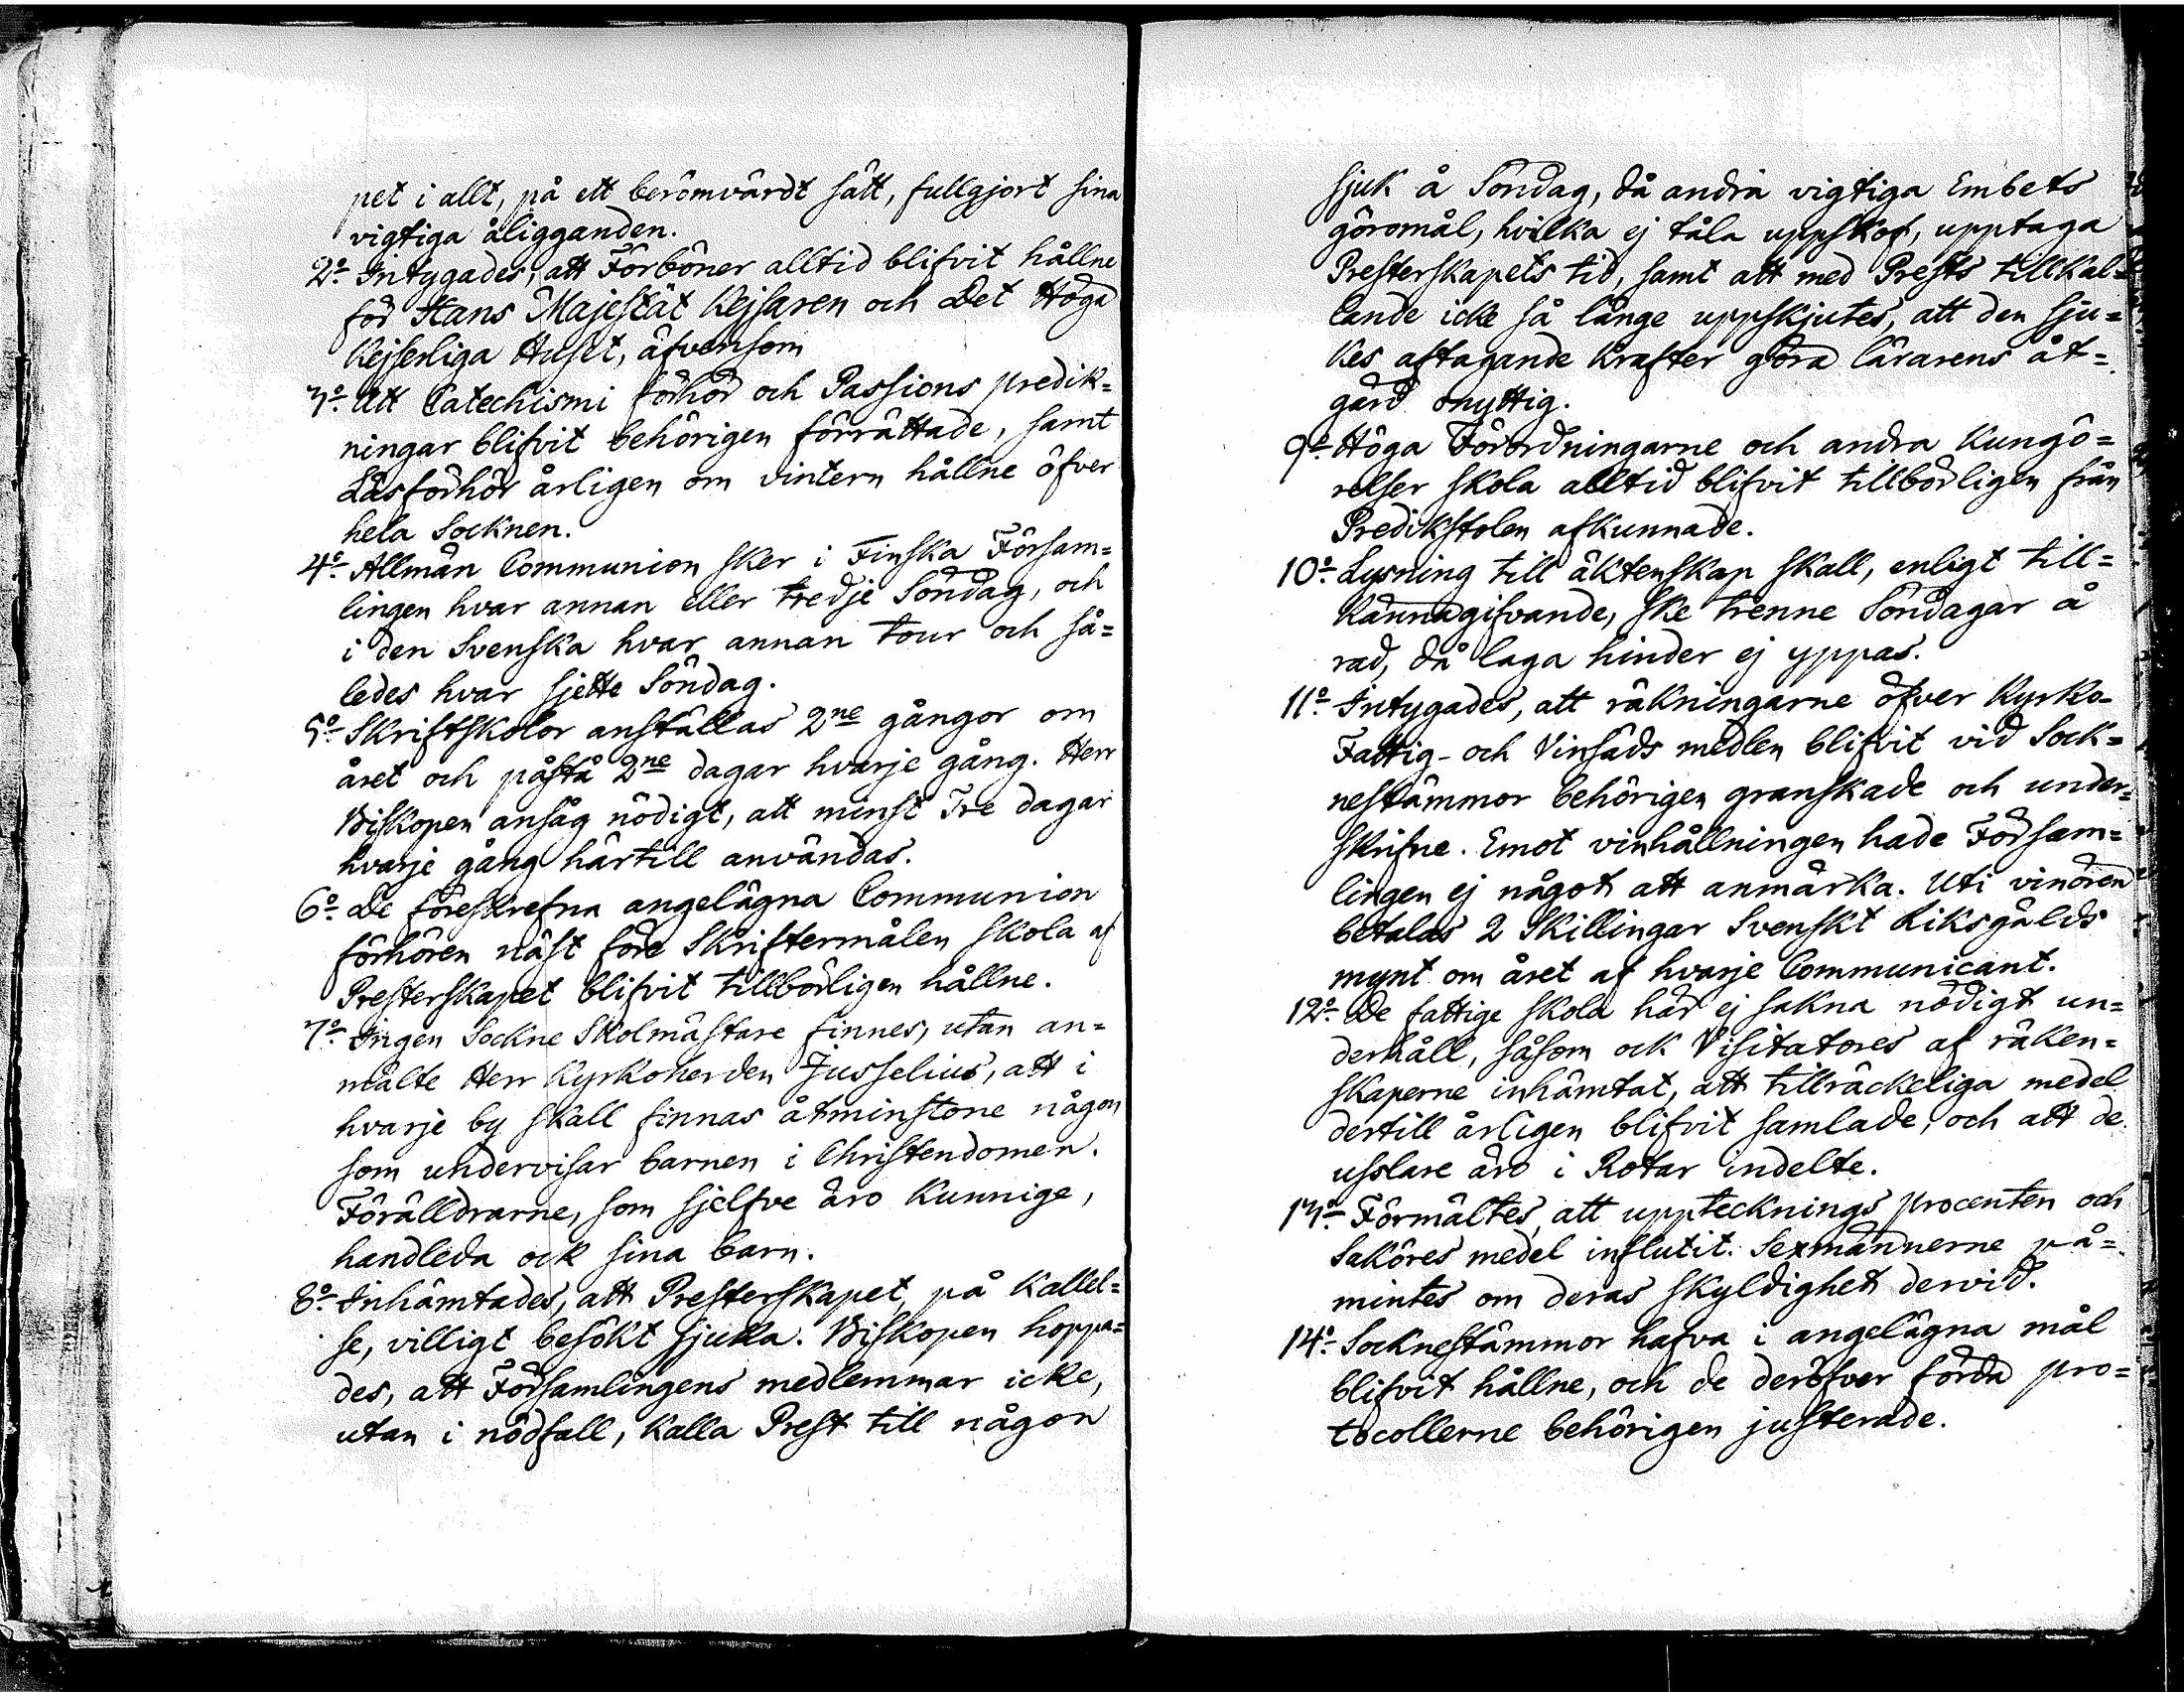 pet i allt, på ett berömvärdt sätt, fullgjort sina
vigtiga åligganden.
2:o Intygades, att Förböner alltid blifvit hållne
för Hans Majestät Kejsaren och Det Höga
Kejserliga Huset, äfvensom
3:o Att Catechismi förhör och Passions predik=
ningar blifvit behörigen förrättade, samt
Läsförhör årligen om vintern hållne öfver
hela Socknen.
4:o Allmän Communion sker i Finska Försam=
lingen hvar annan eller tredje Söndag, och
i den Svenska hvar annan tour och så=
ledes hvar sjette Söndag.
5:o Skriftskolor anställas 2ne gångor om
året och påstå 2ne dagar hvarje gång. Herr
Biskopen ansåg nödigt, att minst Tre dagar
hvarje gång härtill användas.
6:o De föreskrefna angelägna Communion
förhören näst före Skriftermålen skola af
Presterskapet blifvit tillbörligen hållne.
7:o Ingen Sockne Skolmästare finnes, utan an=
mälte Herr Kyrkoherden Jusselius, att i
hvarje by skall finnas åtminstone någon
som undervisar barnen i Christendomen.
Förälldrarne, som sjelfve äro kunnige,
handleda ock sina barn.
8:o Inhämtades, att Presterskapet, på kallel=
se, villigt besökt sjuka. Biskopen hoppa=
des, att Församlingens medlemmar icke,
utan i nödfall, kalla Prest till någon
sjuk å Söndag, då andra vigtiga Embets
göromål, hvilka ej tåla uppskof, upptaga
Presterskapets tid, samt att med Prests tillkal=
lande icke så länge uppskjutes, att den sju=
kes aftagande krafter göra lärarens åt=
gärd onyttig.
9:o Höga Förordningarne och andra kungö=
relser skola alltid blifvit tillbörligen från
Predikstolen afkunnade.
10:o Lysning till äktenskap skall, enligt till=
kännagifvande, ske trenne Söndagar å
rad, då laga hinder ej yppas.
11:o Intygades, att räkningarne öfver Kyrko-
Fattig- och Vinsäds medlen blifvit vid Sock=
nestämmor behörigen granskade och under=
skrifne. Emot vinhållningen hade Försam=
lingen ej något att anmärka. Uti vinören
betalas 2 Skillingar Svenskt Riksgälds
mynt om året af hvarje Communicant.
12:o De fattige skola här ej sakna nödigt un=
derhåll, såsom ock Visitatores af räken=
skaperne inhämtat, att tillräckeliga medel
dertill årligen blifvit samlade, och att de
usslare äro i Rotar indelte.
13:o Förmältes, att upptecknings procenten och
Saköres medel influtit. Sexmännerne på=
mintes om deras skyldighet dervid.
14:o Socknestämmor hafva i angelägna mål
blifvit hållne, och de deröfver förda pro=
tocollerne behörigen justerade.